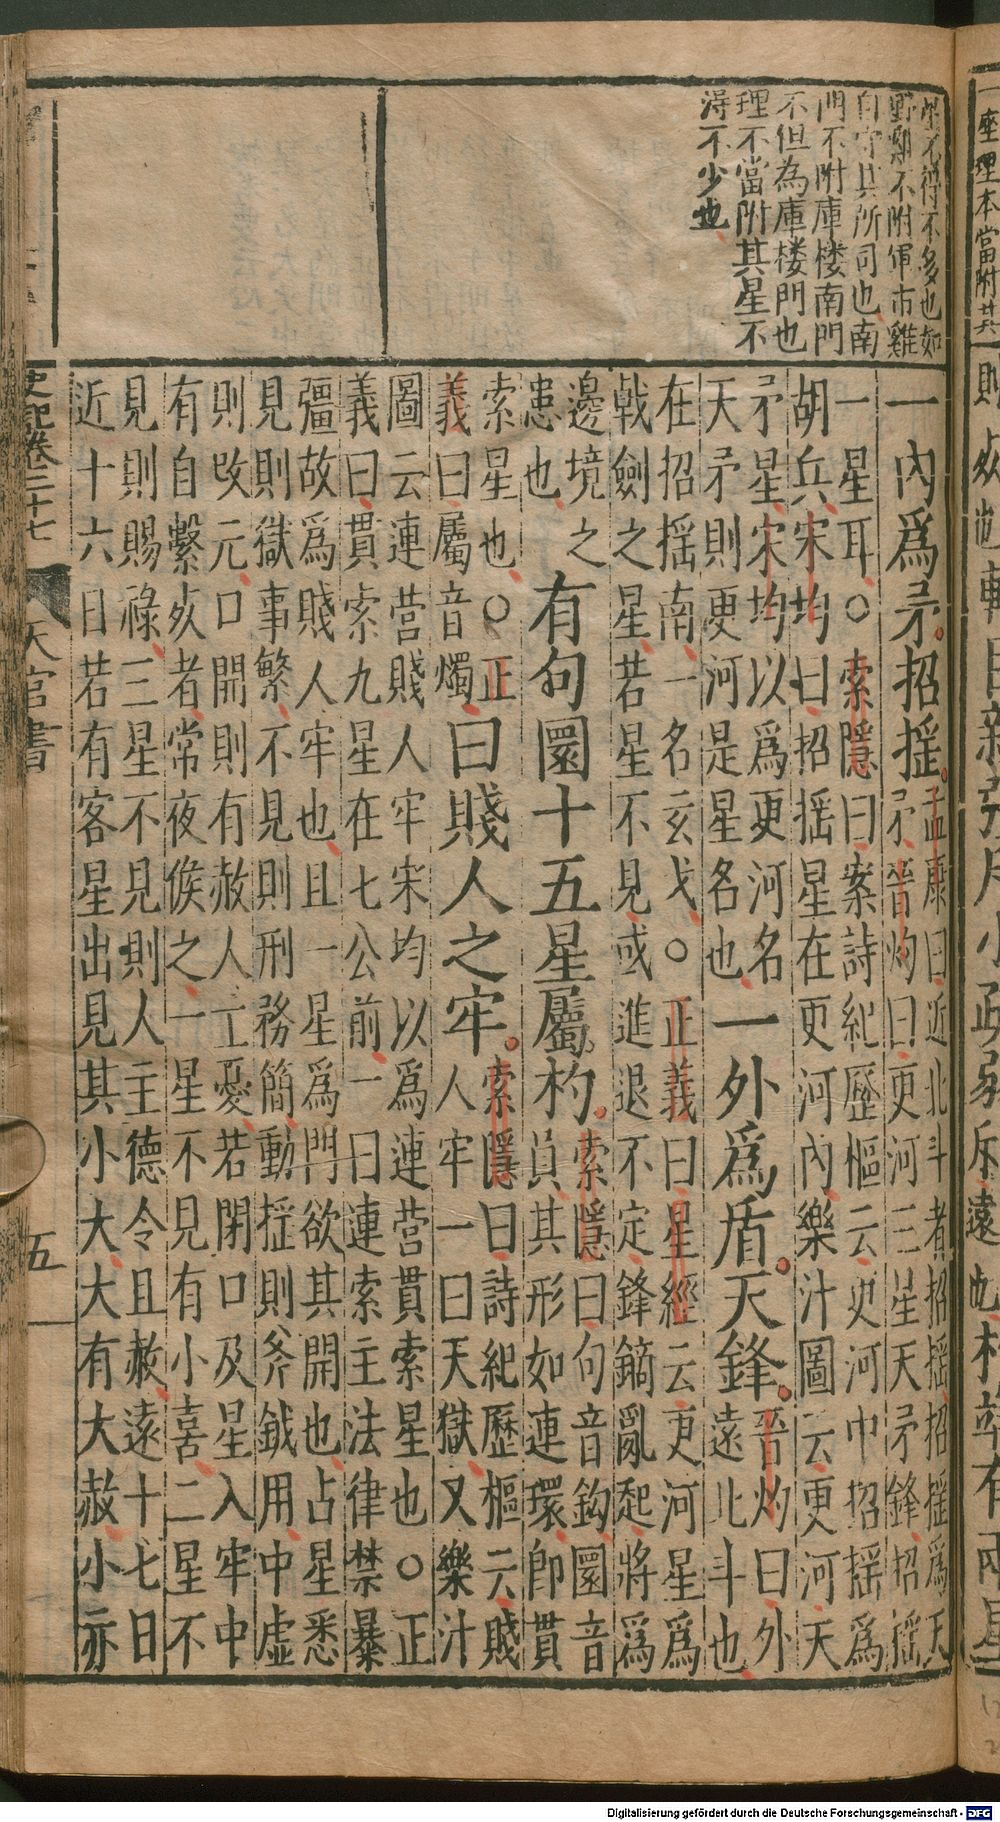 衆不得不多也如
野鷄不附軍市雞
自守其所司也南
門不附庫楼南門
不但為庫楼門也
理不當附其星不
得不少也
一內爲矛招揺孟康曰近北斗者招揺招揺爲天
矛晉灼曰更河三星天矛鋒招揺
一星耳○索隱曰案詩紀歷樞云更河中招揺爲
胡兵宋均曰招揺星在更河內樂汁圖云更河天
矛星宋均以爲更河名
天矛則更河是星名也一外爲盾天鋒晉灼曰外
遠北斗也
在招揺南一名玄戈○正義曰星經云更河星爲
戟劍之星若星不見或進退不定鋒鏑亂起將爲
邊境之
患也有句圜十五星屬杓索隱曰句音鈎圜音
員其形如連環卽貫
索星也○正
義曰屬音燭曰賤人之牢索隱曰詩紀歷樞云賤
人牢一曰天獄又樂汁
圖云連营賤人牢宋均以爲連营貫索星也○正
義曰貫索九星在七公前一曰連索主法律禁暴
彊故爲賤人牢也且一星爲門欲其開也占星悉
見則獄事繁不見則刑務簡動揺則斧鉞用中虚
則攺元口開則有赦人亡憂若閉口及星入牢中
有自繫歿者常夜候之一星不見有小喜二星不
見則賜祿三星不見則人主德令且赦遠十七日
近十六日若有客星出見其小大大有大赦小亦
史記卷二十七
天官書
五
一座理本當附其
Digitalisierung gefördert durch die Deutsche Forschungsgemeinschaft - DFG